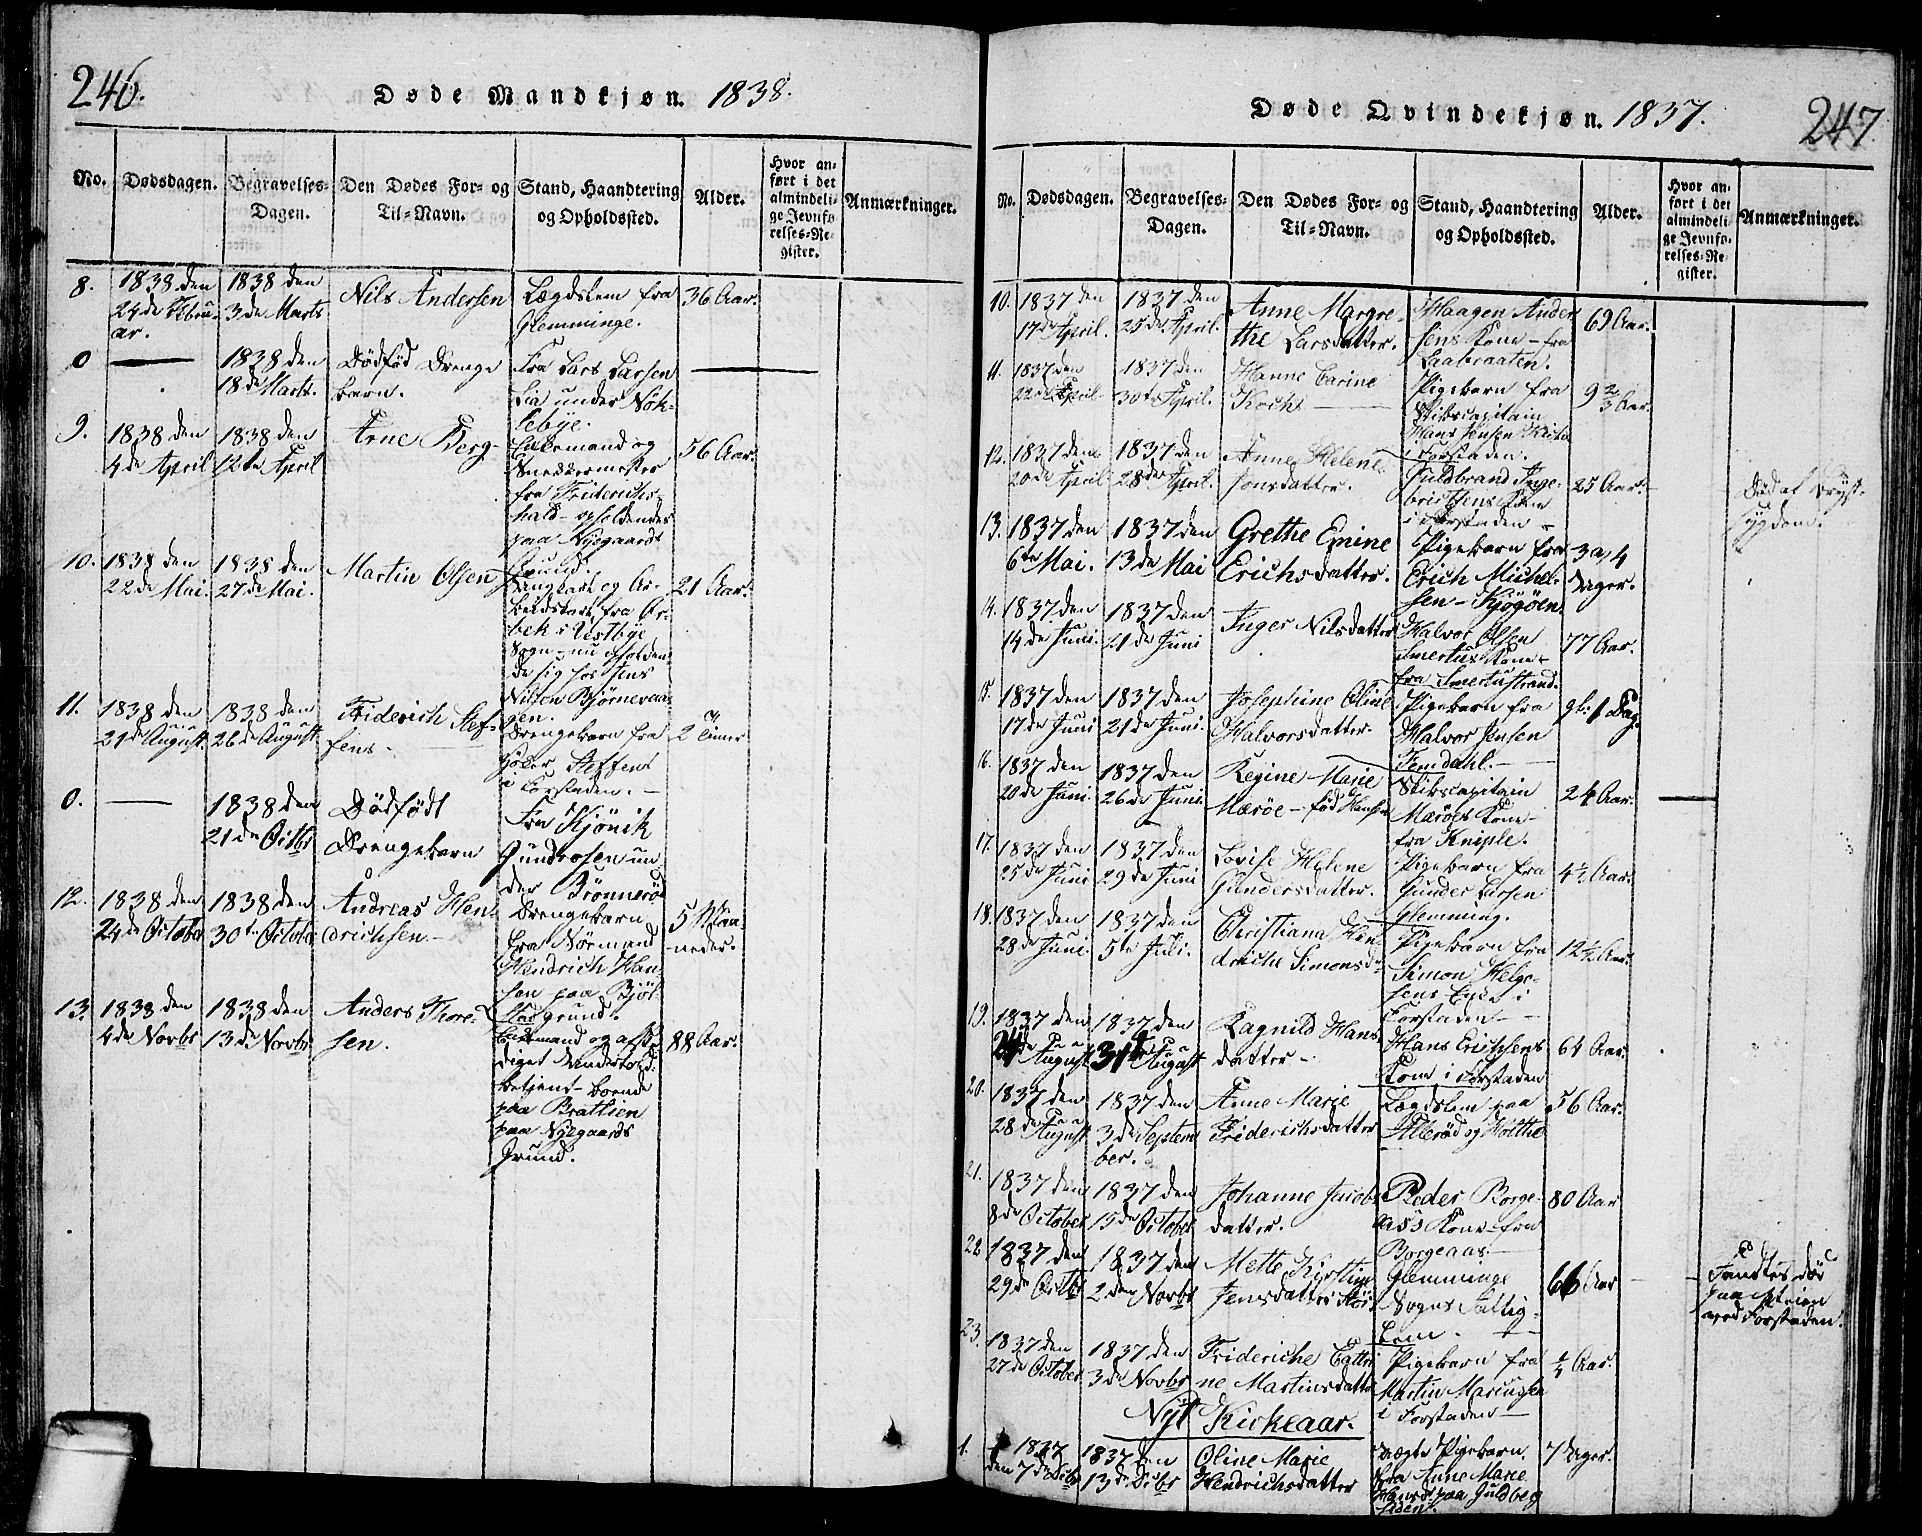 246.
Døde Mandkjøn. 1838.
No. Dødsdagen. Begravelses-Dagen. Den Dødes For- og Til-Navn. Stand, Haandtering og Opholdssted. Alder. Hvor anført i det almindelige Jevnførelses-Register. Anmærkninger.
8. 1838 den 24de Februar. 1838 den 3de Marts Nils Andersen Lægdslem fra Glemminge. 36 Aar.
0 — 1838 den 18de Marts. Dødfød Drengebarn. Fra Lars Larsen Lia under Nøklebye. —
9. 1838 den 4de April 1838 den 12te April Arne Berg Enkemand og Snedkermester fra Friderichshald - opholdendes paa Nygaards Grund. 56 Aar.
10. 1838 den 22de Mai. 1838 den 27de Mai. Martin Olsen Ungkarl og Arbeidskarl fra Østbye Sogn - nu opholdende sig hos Jens Nilsen Bjørnevaagen. 21 Aar.
11. 1838 den 21de August. 1838 den 26de August Friderich Steffens - Drengebarn fra Steffens i Forstaden. - 2 Timer
0. — 1838 den 21de Octbr Dødfødt Drengebarn Fra Kjønik Gundrosen under Brønnerød
12. 1838 den 24de October 1838 den 30te October Andreas Hendrichsen. Drengebarn fra Nørmand Hendrich Hansen paa Bjølstad grund. 5 Maaneder.
13. 1838 den 4de Novbr 1838 den 13de Novbr Anders Thoresen. Enkemand og afskediget Undertoldbetjent - boende paa Brattlien paa Nygaards Grund. 88 Aar.
247.
Døde Qvindekjøn. 1837.
No. Dødsdagen. Begravelses-Dagen. Den Dødes For- og Til-Navn. Stand, Haandtering og Opholdssted. Alder. Hvor anført i det almindelige Jevnførelses-Register. Anmærkninger.
10. 1837 den 17de April. 1837 den 25de April. Anne Margrethe Larsdatter. Haagen Andersens Kone - fra Laabraaten. 69 Aar.
11. 1837 den 22de April. 1837 den 30te April. Hanne Carine Koch — Pigebarn fra Skibscapitain Hans Jensen i Forstaden. 9 2/3 Aar.
12. 1837 den 20de April 1837 den 28de April. Anne Helene Jonsdatter. Guldbrand Ingebrigtsens Kone i Forstaden - 25 Aar. - Død af Brystsygdom.
13. 1837 den 6te Mai. 1837 den 13de Mai Grethe Emine Erichsdatter. Pigebarn fra Erich Michelsen - Kjøgøen 3 a 4 Dager.
14. 1837 den 14de Juni. 1837 den 21de Juni Inger Nilsdatter Halvor Olsen Smertus Kone - fra Smertustrand. 77 Aar.
15. 1837 den 17de Juni 1837 den 21de Juni. Josephine Oline Halvorsdatter. Pigebarn fra Halvor Jensen Femdahl. - 1 Dag.
16. 1837 den 20de Juni. 1837 den 26de Juni. Regine Marie Mærøe - fød Hansen Skibscapitain Mærøes Kone - fra Kniple. 24 Aar. —
17. 1837 den 25de Juni 1837 den 29de Juni Lovise Helene Gundersdatter. Pigebarn fra Gunder Larsen Glemming. 4½ Aar.
18. 1837 den 28de Juni. 1837 den 5te Juli. Christiana Hendriche Simonsd. Pigebarn fra Simon Helgesens Enke i Forstaden - 12½ Aar.
19. 1837 den 24de August 1837 den 31te August Ragnild Hansdatter - Hans Erichsens Kone i Forstaden 64 Aar.
20. 1837 den 28de August 1837 den 3de September. Anne Marie Friderichsdatter Lægdslem paa Alberød og Holthe 56 Aar.
21. 1837 den 8de October 1837 den 15de October Johanne Jacobsdatter. Peder Borgeaas's Kone fra Borgeaas. 80 Aar
22. 1837 den 29de Octbr 1837 den 2den Novbr Mette Kirstine Jensdatter Glemminge Sogns Fattiglem. 66 Aar - Fandtes død paa Veien ved Forstaden.
23. 1837 den 27de October 1837 den 3de Novbr Frideriche Cathrine Martinsdatter Pigebarn fra Martin Mariussen i Forstaden - ¼ Aar.
Nyt Kirkeaar.
1. 1837 den 7de Decbr 1837 den 13de Decbr Oline Marie Hendrichsdatter Uægte Pigebarn. fra Anne Marie Hansd. paa Guldbergsiden. 7 Dager.